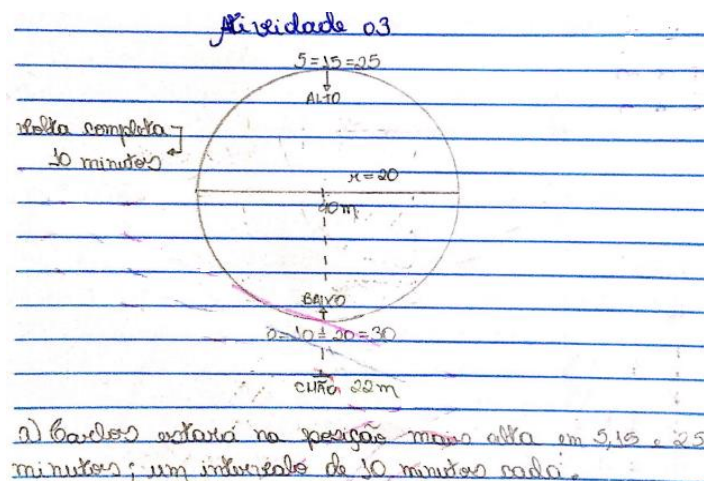 Atividade 03
5=15=25
ALTO
volta completa
10 minutos
r=20
40m
BAIXO
0=10=20=30
CHÃO 22m
a) Carlos estará na posição mais alta em 5,15 e 25
minutos; um intervalo de 10 minutos cada.